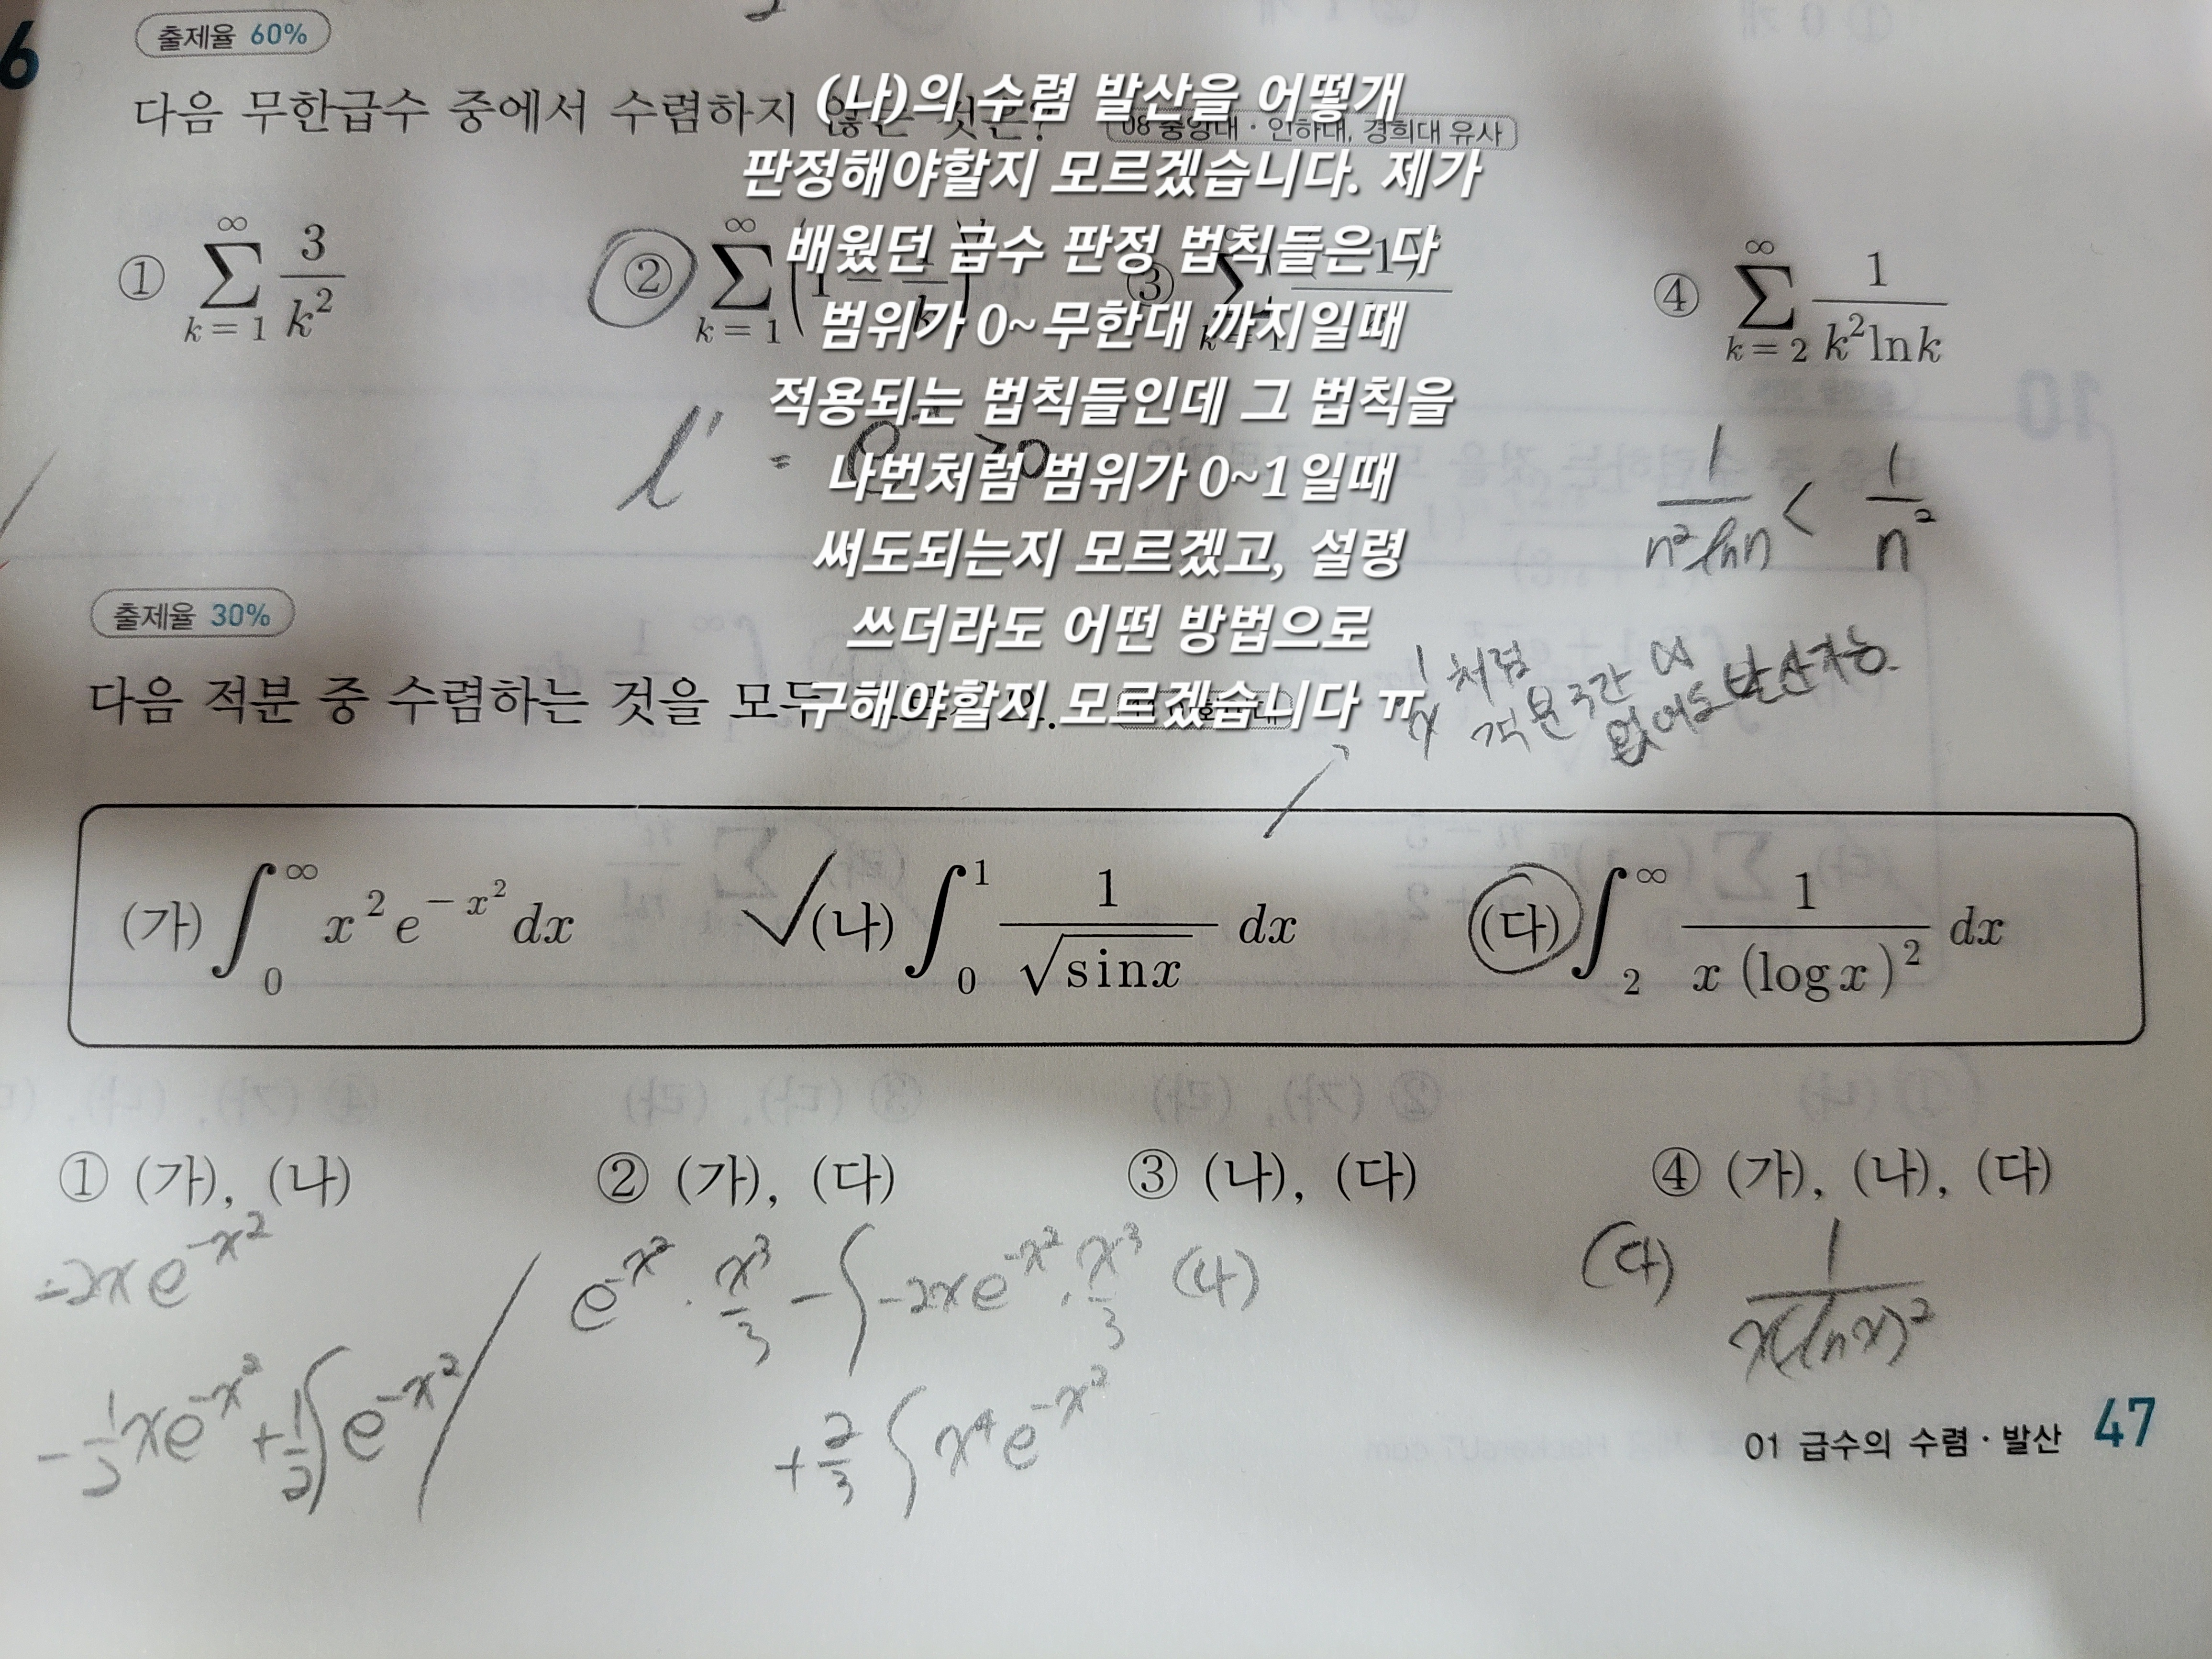 6
출제율 60%
다음 무한급수 중에서 수렴하지 않는 것은? 08 중앙대 · 인하대, 경희대 유사
(나)의 수렴 발산을 어떻개
판정해야할지 모르겠습니다. 제가
배웠던 급수 판정 법칙들은 다
범위가 0~무한대 까지일때
적용되는 법칙들인데 그 법칙을
나번처럼 범위가 0~1일때
써도되는지 모르겠고, 설령
쓰더라도 어떤 방법으로
구해야할지 모르겠습니다 ㅠ
① ∑_{k=1}^{∞} 3/k²
② ∑_{k=1}^{∞} (1 −
③
④ ∑_{k=2}^{∞} 1/(k² ln k)
1/(n² ln n) < 1/n²
출제율 30%
다음 적분 중 수렴하는 것을 모두
1/x 처럼
적분구간 ∞
없어도 발산가능.
(가) ∫_0^∞ x² e^{-x²} dx (나) ∫_0^1 1/√(sin x) dx (다) ∫_2^∞ 1/(x (log x)²) dx
① (가), (나) ② (가), (다) ③ (나), (다) ④ (가), (나), (다)
-2xe^{-x²}
e^{-x²} · x³/3 − ∫ -2xe^{-x²} · x³/3 (나)
(다) 1/(x(ln x)²)
-1/2 xe^{-x²} + 1/2 ∫ e^{-x²}
+ 2/3 ∫ x⁴ e^{-x²}
01 급수의 수렴 · 발산 47